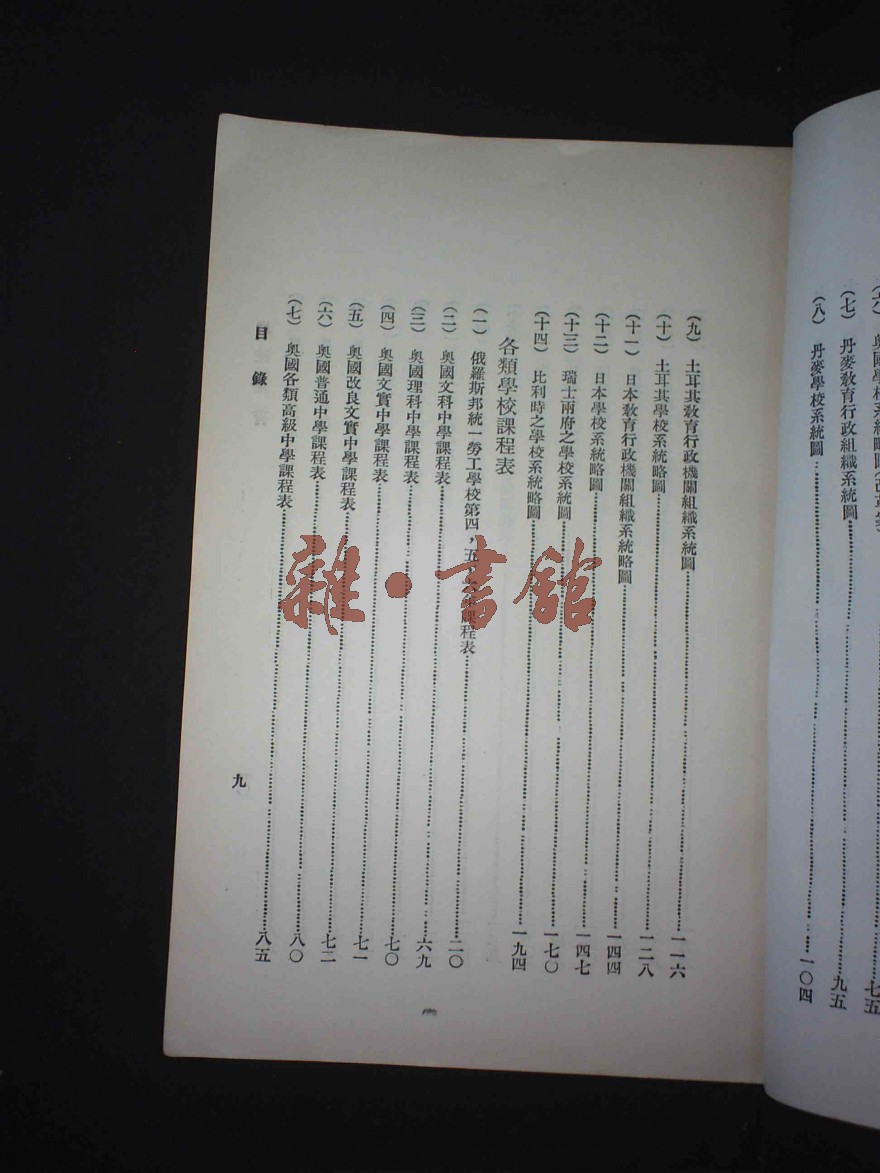 （六）奧國學校系統圖……七五
（七）丹麥教育行政組織系統圖……九五
（八）丹麥學校系統圖……一〇四
（九）土耳其教育行政機關組織系統圖……一一六
（十）土耳其學校系統略圖……一二八
（十一）日本教育行政機關組織系統略圖……一四四
（十二）日本學校系統略圖……一四七
（十三）瑞士兩府之學校系統圖……一七〇
（十四）比利時之學校系統略圖……一九四
各類學校課程表
（一）俄羅斯邦統一勞工學校第四，五課程表……二〇
（二）奧國文科中學課程表……六九
（三）奧國理科中學課程表……七〇
（四）奧國文實中學課程表……七一
（五）奧國改良文實中學課程表……七二
（六）奧國普通中學課程表……八〇
（七）奧國各類高級中學課程表……八五
目錄
九
雜·書館